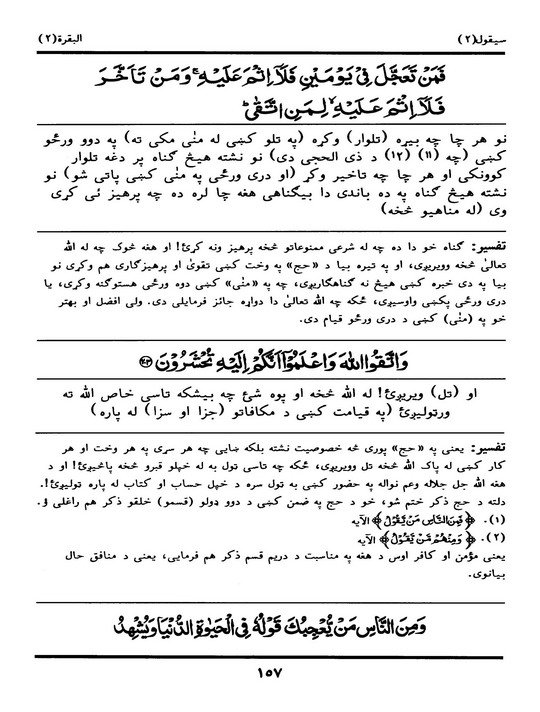 سيقول(۲) البقرة(۲)
فَمَنْ تَعَجَّلَ فِيْ يَوْمَيْنِ فَلَآ اِثْمَ عَلَيْهِ ۚ وَمَنْ تَاَخَّرَ
فَلَآ اِثْمَ عَلَيْهِ ۙ لِمَنِ اتَّقٰى ؕ
نو هر چا چه بيړه (تلوار) وکړه (په تلو کښی له منٰی مکی ته) په دوو ورځو
کښی (چه (۱۱) (۱۲) د ذی الحجی دی) نو نشته هیڅ گناه پر دغه تلوار
کوونکی او هر چا چه تاخیر وکړ (او دری ورځی په منٰی کښی پاتی شو) نو
نشته هیڅ گناه په ده باندی دا بیگناهی هغه چا لره ده چه پرهیز ئی کړی
وی (له مناهیو څخه)
تفسير: گناه خو دا ده چه له شرعی ممنوعاتو څخه پرهیز ونه کړئ! او هغه څوک چه له الله
تعالیٰ څخه وویریږی، او په تیره بیا د «حج» په وخت کښی تقویٰ او پرهیزگاری هم وکړی نو
بیا په دی خبره کښی هیڅ نه گناهگاریږی، چه په «منٰی» کښی دوه ورځی هستوگنه وکړی، یا
دری ورځی پکښی واوسیږی، ځکه چه الله تعالیٰ دا دواړه جائز فرمایلی دی. ولی افضل او بهتر
خو په (منٰی) کښی د دری ورځو قیام دی.
وَاتَّقُوا اللهَ وَاعْلَمُوْٓا اَنَّكُمْ اِلَيْهِ تُحْشَرُوْنَ ﴿۲۰۳﴾
او (تل) ویریږئ! له الله څخه او پوه شئ چه بیشکه تاسی خاص الله ته
ورټولیږئ (په قیامت کښی د مکافاتو (جزا او سزا) له پاره)
تفسير: یعنی په «حج» پوری څه خصوصیت نشته بلکه ښایی چه هر سړی په هر وخت او هر
کار کښی له پاک الله څخه تل وویریږی، ځکه چه تاسی ټول به له خپلو قبرو څخه پاڅیږئ! او د
هغه الله جل جلاله وعم نواله په حضور کښی به ټول سره د خپل حساب او کتاب له پاره ټولیږئ!.
دلته د حج ذکر ختم شو، خو د حج په ضمن کښی د دوو ډولو (قسمو) خلقو ذکر هم راغلی ؤ.
(۱). ﴿ فَمِنَ النَّاسِ مَنْ يَّقُوْلُ ﴾ الآيه
(۲). ﴿ وَمِنْهُمْ مَّنْ يَّقُوْلُ ﴾ الآيه
یعنی مؤمن او کافر اوس د هغه په مناسبت د دریم قسم ذکر هم فرمایی، یعنی د منافق حال
بیانوی.
وَمِنَ النَّاسِ مَنْ يُّعْجِبُكَ قَوْلُهٗ فِي الْحَيٰوةِ الدُّنْيَا وَيُشْهِدُ
۱۵۷